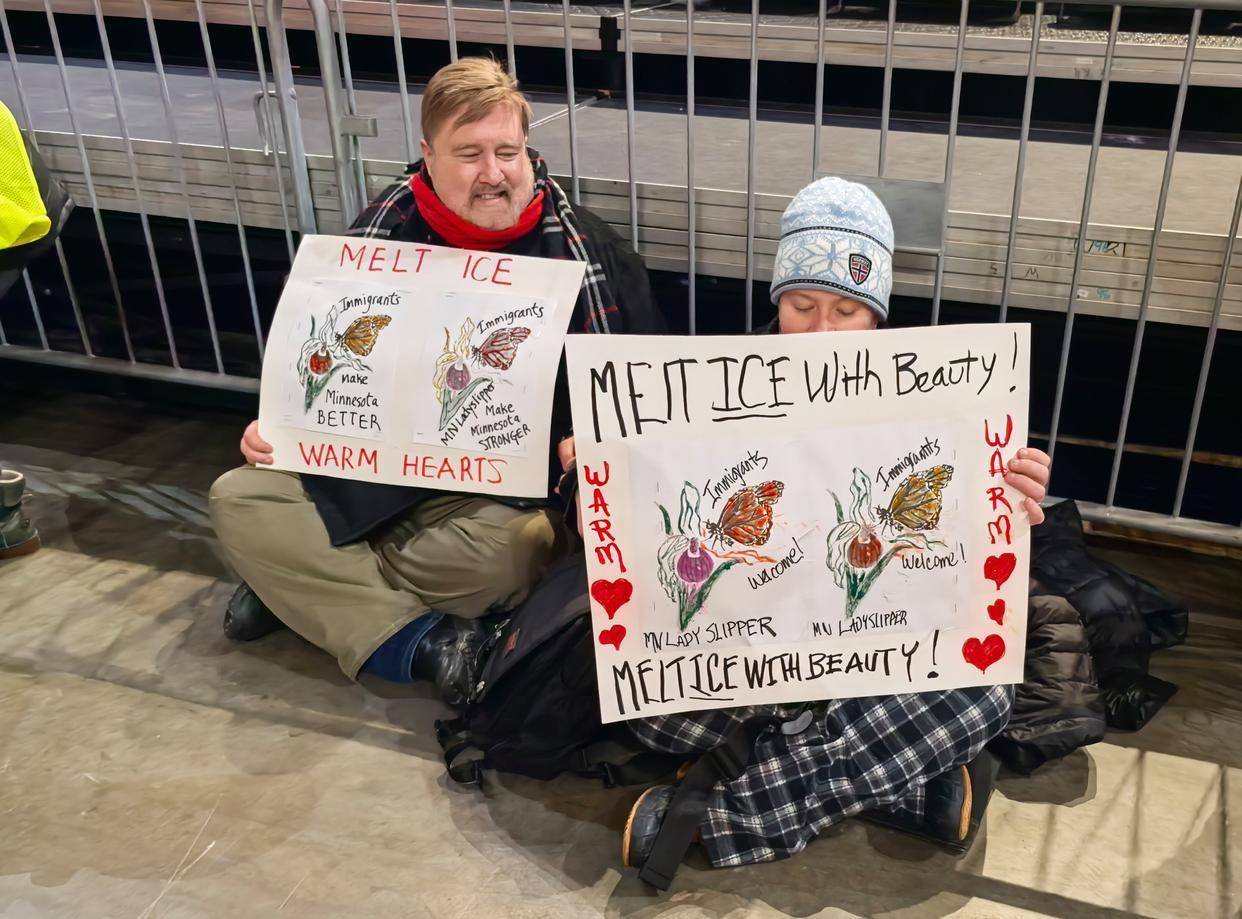 MELT ICE
Immigrants
make
Minnesota
BETTER
Immigrants
MN Ladyslipper
Make
Minnesota
STRONGER
WARM HEARTS
MELT ICE With Beauty!
WARM
Immigrants
Welcome!
MN LADY SLIPPER
Immigrants
Welcome!
MN LADYSLIPPER
WARM
MELT ICE WITH BEAUTY!